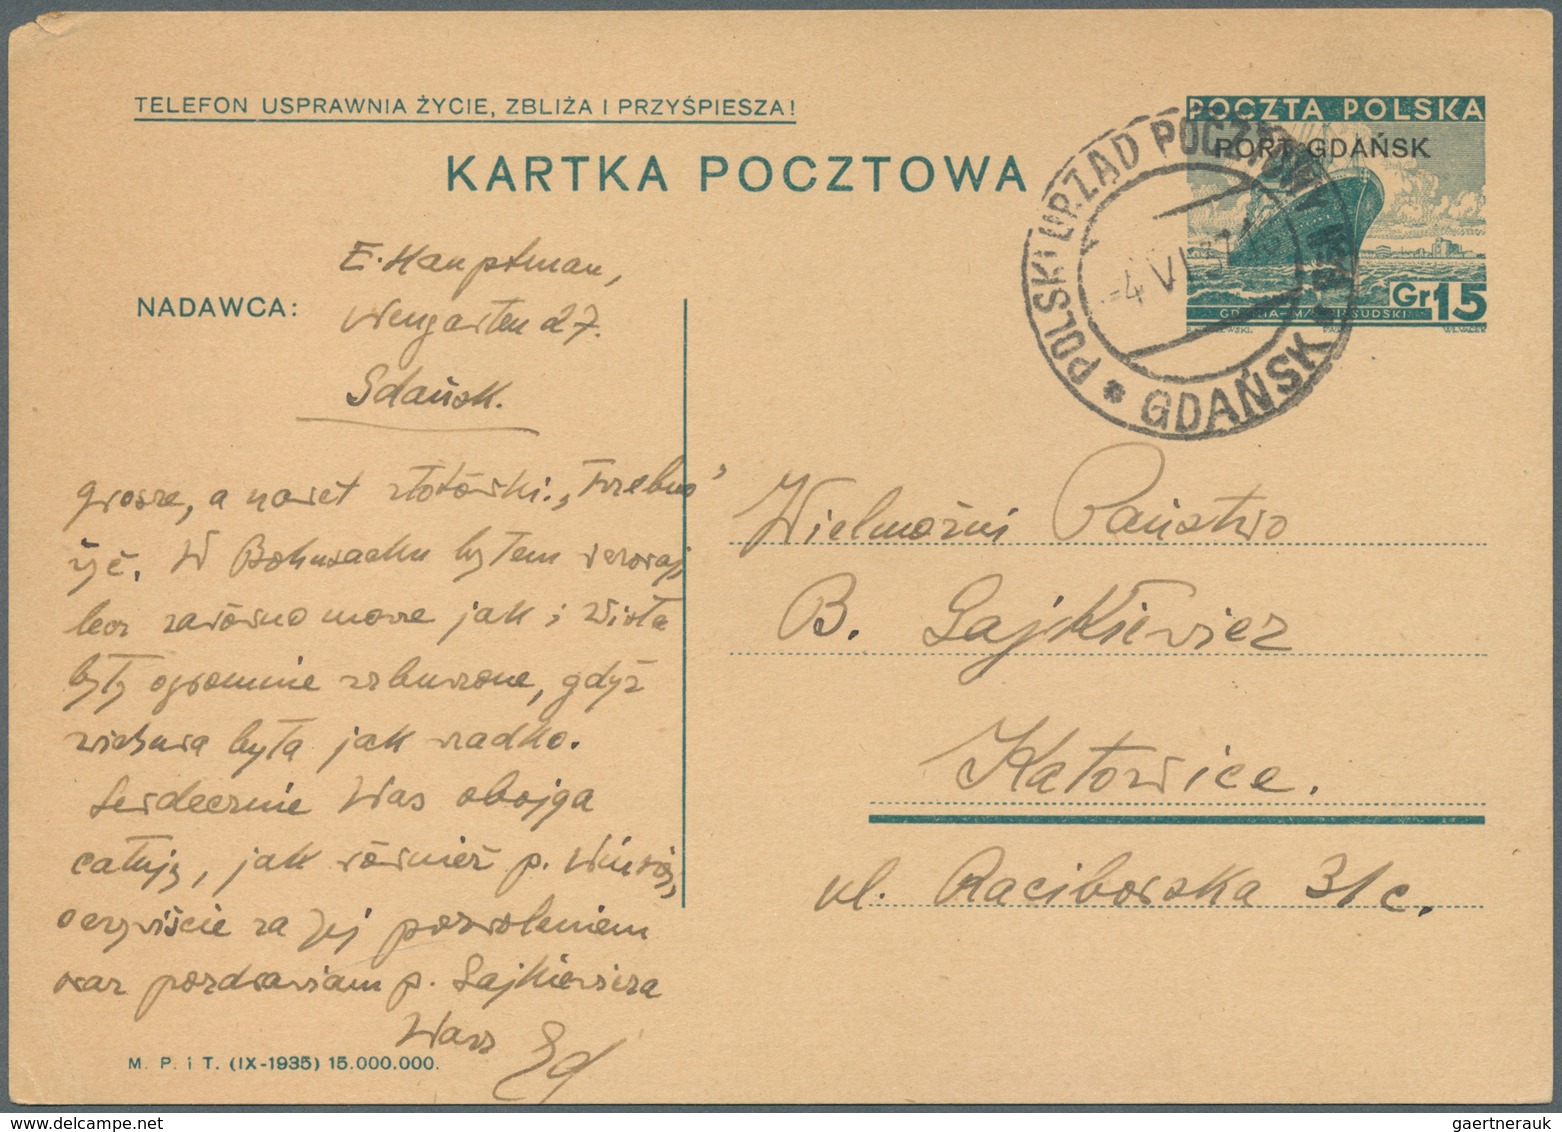 TELEFON USPRAWNIA ŻYCIE, ZBLIŻA I PRZYŚPIESZA!
KARTKA POCZTOWA
POCZTA POLSKA
PORT GDAŃSK
Gr 15
POLSKI URZĄD POCZTOWY
-4 VI 37
* GDAŃSK *
NADAWCA:
E. Hauptman,
Weingarten 27.
Gdańsk.
grosze, a nawet złotówki. „Trzeba”
żyć. W Bohnsacku byłem wczoraj,
lecz zarówno morze jak i Wisła
były ogromnie wzburzone, gdyż
wichura była jak rzadko.
Serdecznie Was obojga
całuję, jak również p.
oczywiście za Jej pozwoleniem
oraz pozdrawiam p. Sajkiewicza
Wasz Ed
Wielmożni Państwo
B. Sajkiewicz
Katowice.
ul. Raciborska 31c.
M. P. i T. (IX-1935) 15.000.000.
gaertnerauk